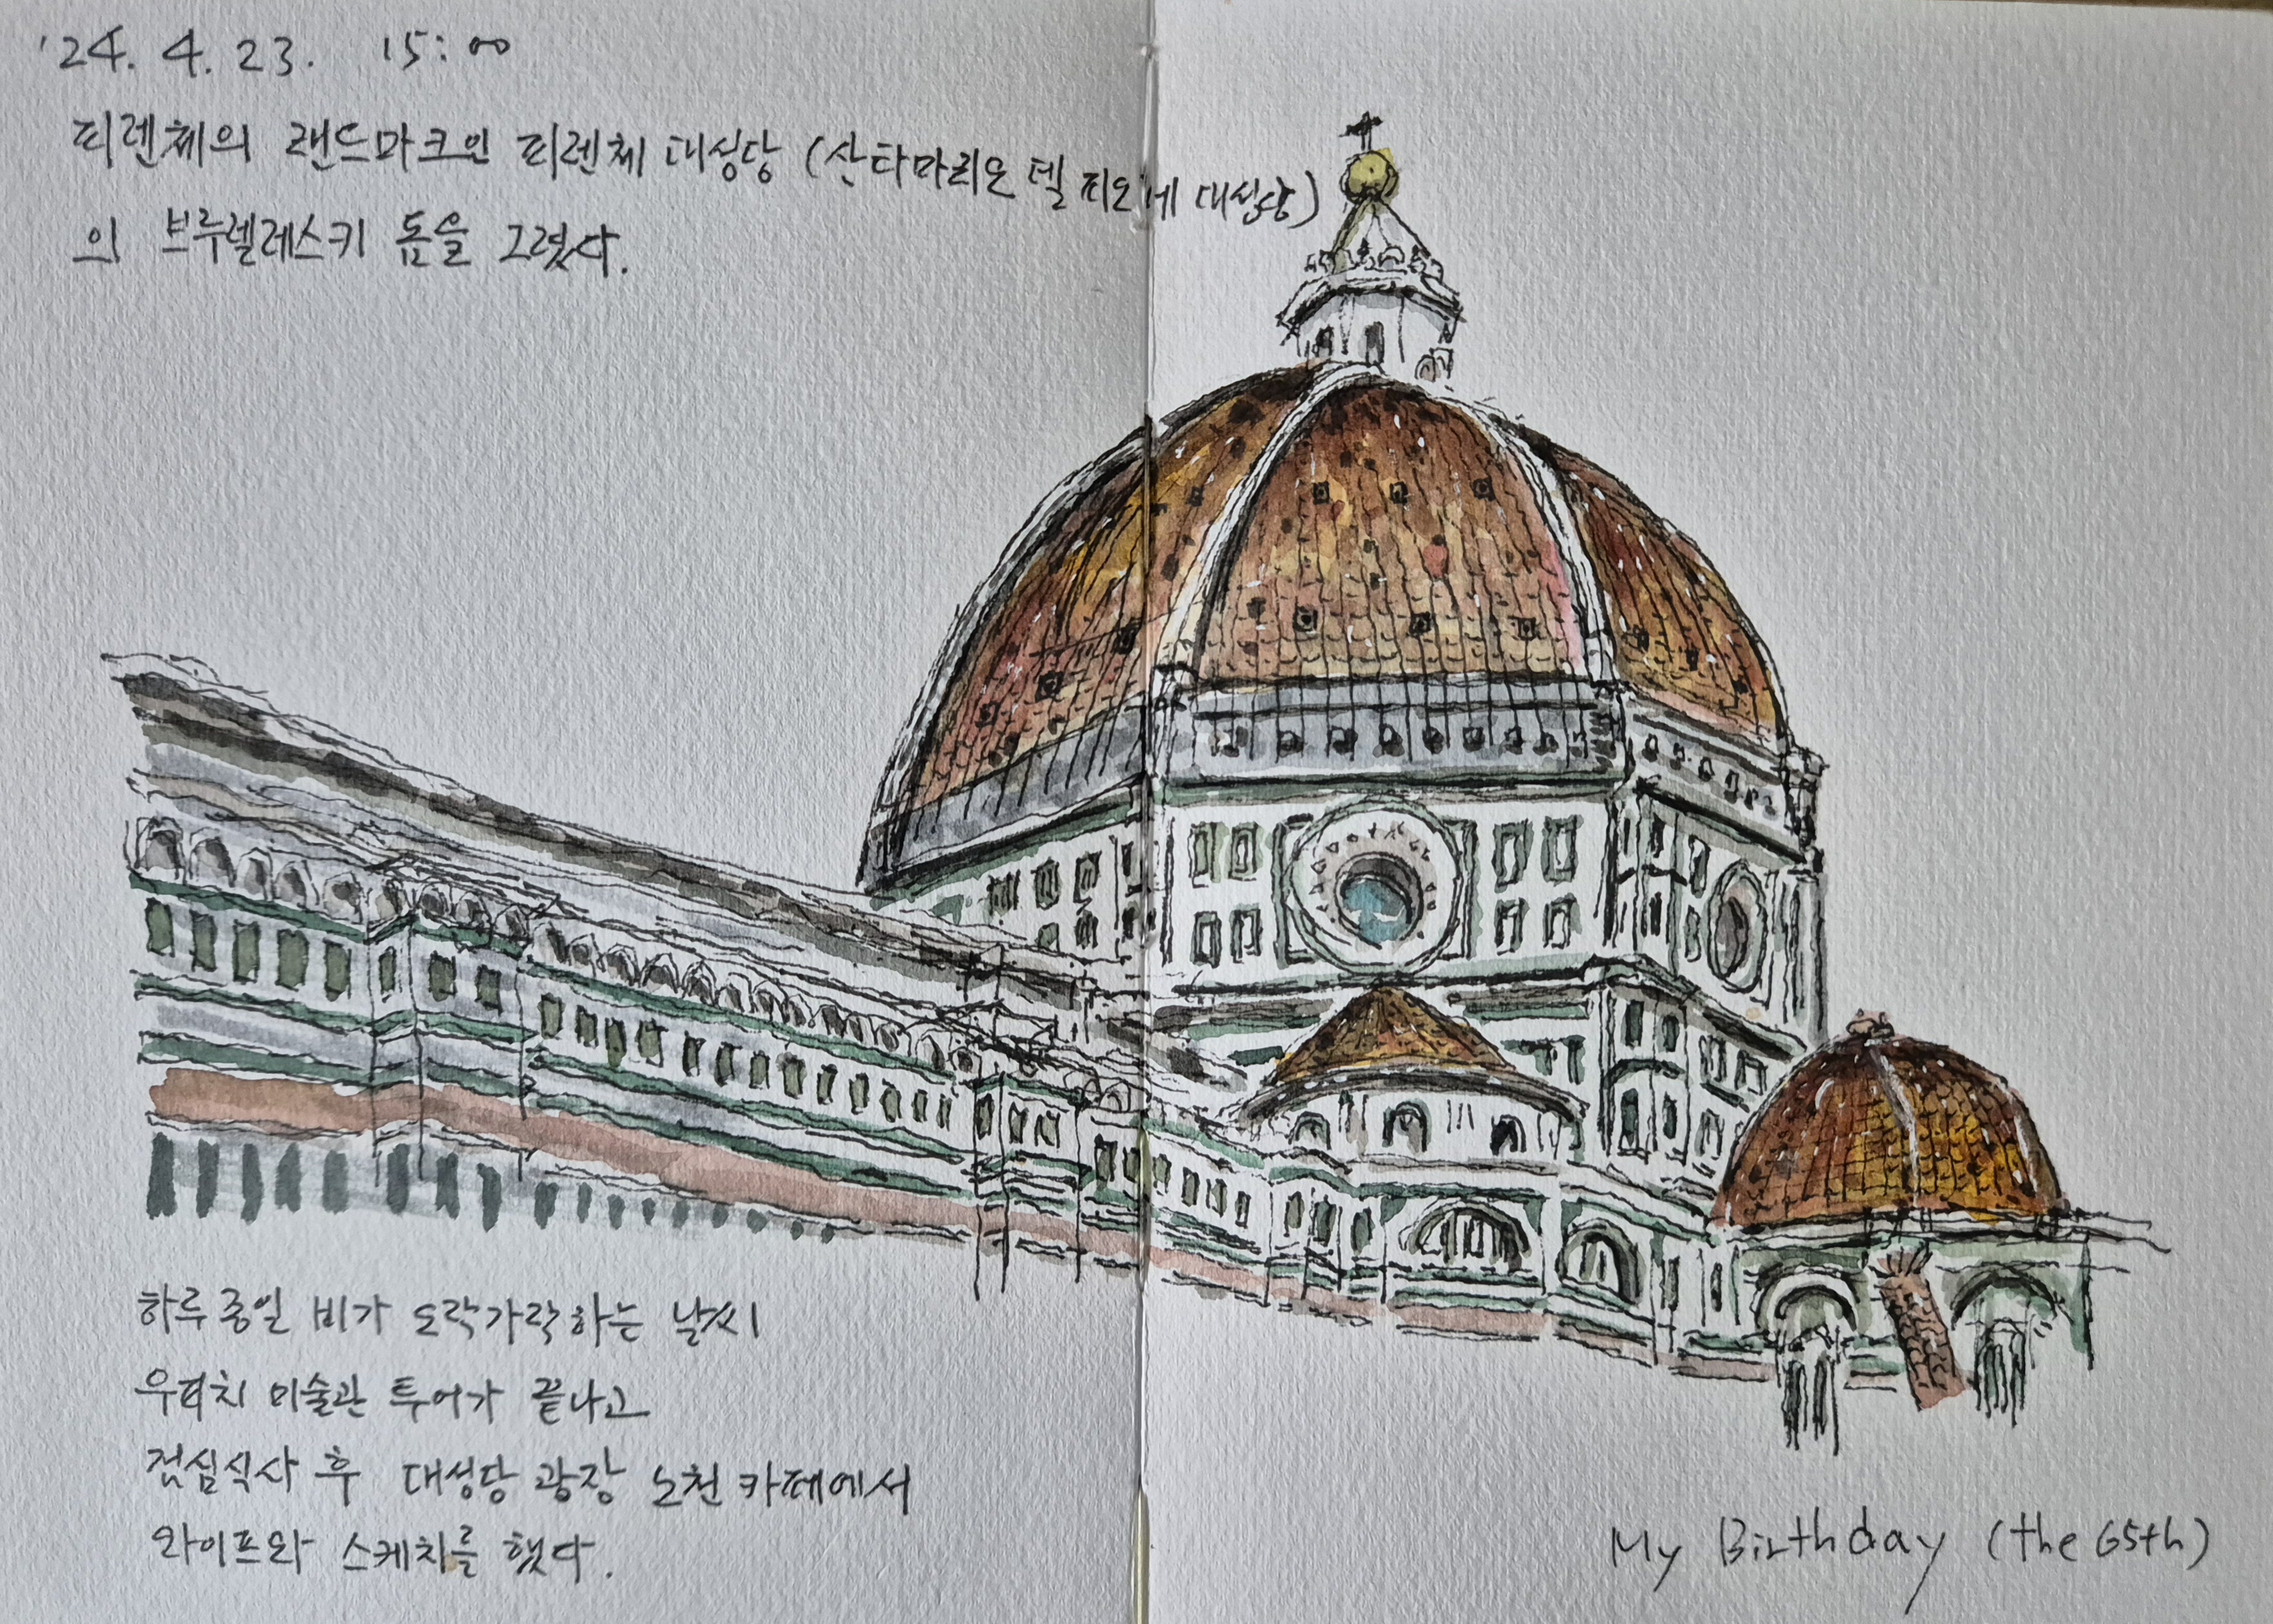 '24. 4. 23. 15:00
피렌체의 랜드마크인 피렌체 대성당 (산타마리오 델 피오레 대성당)
의 브루넬레스키 돔을 그렸다.
하루종일 비가 오락가락하는 날씨
우피치 미술관 투어가 끝나고
점심식사 후 대성당 광장 노천 카페에서
와이프와 스케치를 했다.
My Birthday (the 65th)